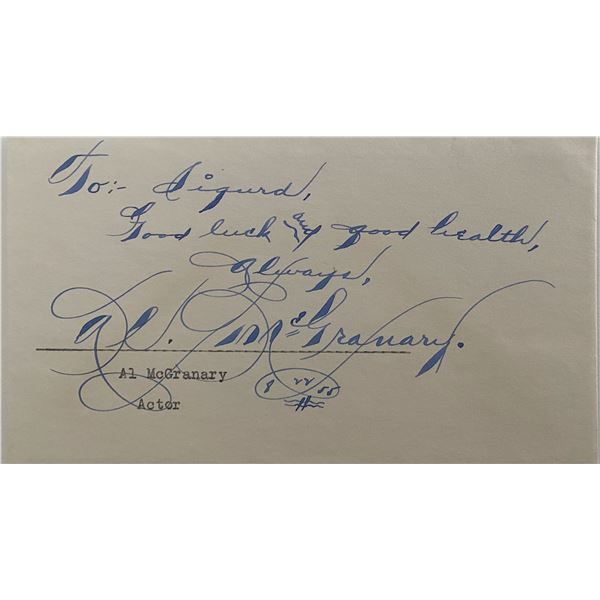 To:- Sigurd,
Good luck and good health,
always,
Al. McGranary.
Al McGranary
8 22 55
Actor